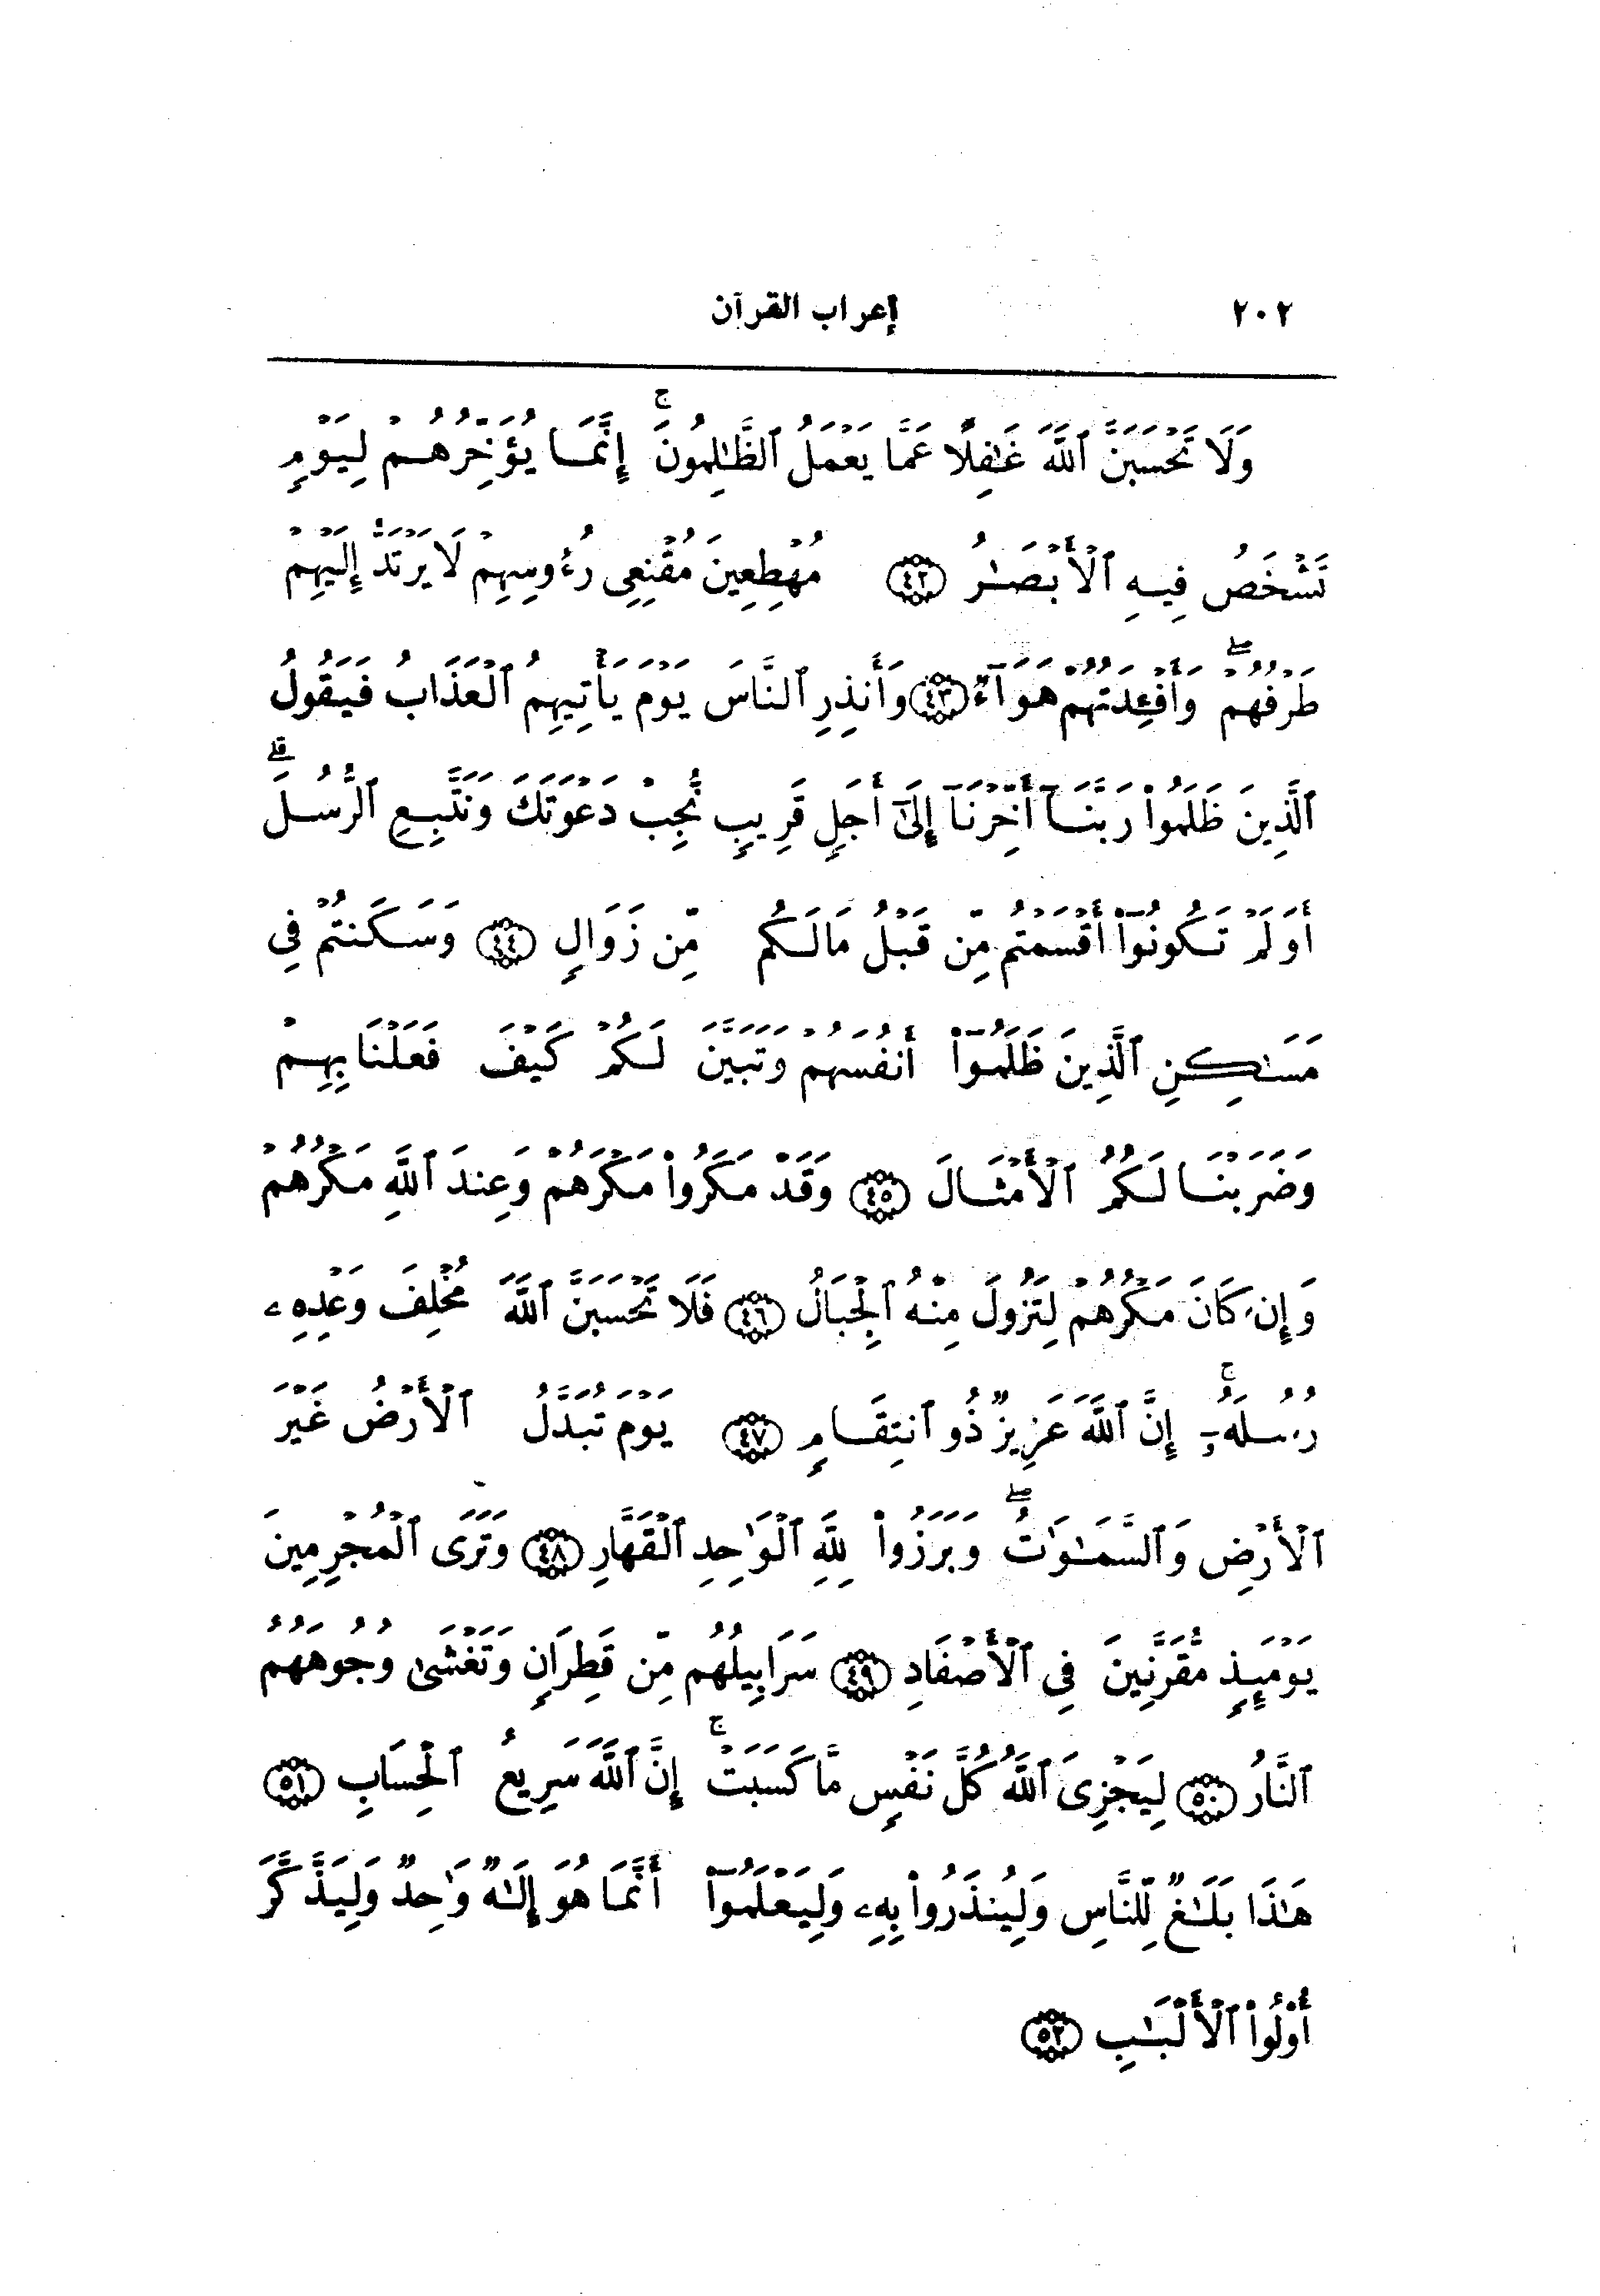 ٢٠٢ إعراب القرآن
وَلَا تَحْسَبَنَّ ٱللَّهَ غَـٰفِلًا عَمَّا يَعْمَلُ ٱلظَّـٰلِمُونَ ۚ إِنَّمَا يُؤَخِّرُهُمْ لِيَوْمٍ
تَشْخَصُ فِيهِ ٱلْأَبْصَـٰرُ ﴿٤٢﴾ مُهْطِعِينَ مُقْنِعِى رُءُوسِهِمْ لَا يَرْتَدُّ إِلَيْهِمْ
طَرْفُهُمْ ۖ وَأَفْـِٔدَتُهُمْ هَوَآءٌ ﴿٤٣﴾ وَأَنذِرِ ٱلنَّاسَ يَوْمَ يَأْتِيهِمُ ٱلْعَذَابُ فَيَقُولُ
ٱلَّذِينَ ظَلَمُوا۟ رَبَّنَآ أَخِّرْنَآ إِلَىٰٓ أَجَلٍ قَرِيبٍ نُّجِبْ دَعْوَتَكَ وَنَتَّبِعِ ٱلرُّسُلَ ۗ
أَوَلَمْ تَكُونُوٓا۟ أَقْسَمْتُم مِّن قَبْلُ مَا لَكُم مِّن زَوَالٍ ﴿٤٤﴾ وَسَكَنتُمْ فِى
مَسَـٰكِنِ ٱلَّذِينَ ظَلَمُوٓا۟ أَنفُسَهُمْ وَتَبَيَّنَ لَكُمْ كَيْفَ فَعَلْنَا بِهِمْ
وَضَرَبْنَا لَكُمُ ٱلْأَمْثَالَ ﴿٤٥﴾ وَقَدْ مَكَرُوا۟ مَكْرَهُمْ وَعِندَ ٱللَّهِ مَكْرُهُمْ
وَإِن كَانَ مَكْرُهُمْ لِتَزُولَ مِنْهُ ٱلْجِبَالُ ﴿٤٦﴾ فَلَا تَحْسَبَنَّ ٱللَّهَ مُخْلِفَ وَعْدِهِۦ
رُسُلَهُۥٓ ۚ إِنَّ ٱللَّهَ عَزِيزٌ ذُو ٱنتِقَامٍ ﴿٤٧﴾ يَوْمَ تُبَدَّلُ ٱلْأَرْضُ غَيْرَ
ٱلْأَرْضِ وَٱلسَّمَـٰوَٰتُ ۖ وَبَرَزُوا۟ لِلَّهِ ٱلْوَٰحِدِ ٱلْقَهَّارِ ﴿٤٨﴾ وَتَرَى ٱلْمُجْرِمِينَ
يَوْمَئِذٍ مُّقَرَّنِينَ فِى ٱلْأَصْفَادِ ﴿٤٩﴾ سَرَابِيلُهُم مِّن قَطِرَانٍ وَتَغْشَىٰ وُجُوهَهُمُ
ٱلنَّارُ ﴿٥٠﴾ لِيَجْزِىَ ٱللَّهُ كُلَّ نَفْسٍ مَّا كَسَبَتْ ۚ إِنَّ ٱللَّهَ سَرِيعُ ٱلْحِسَابِ ﴿٥١﴾
هَـٰذَا بَلَـٰغٌ لِّلنَّاسِ وَلِيُنذَرُوا۟ بِهِۦ وَلِيَعْلَمُوٓا۟ أَنَّمَا هُوَ إِلَـٰهٌ وَٰحِدٌ وَلِيَذَّكَّرَ
أُو۟لُوا۟ ٱلْأَلْبَـٰبِ ﴿٥٢﴾